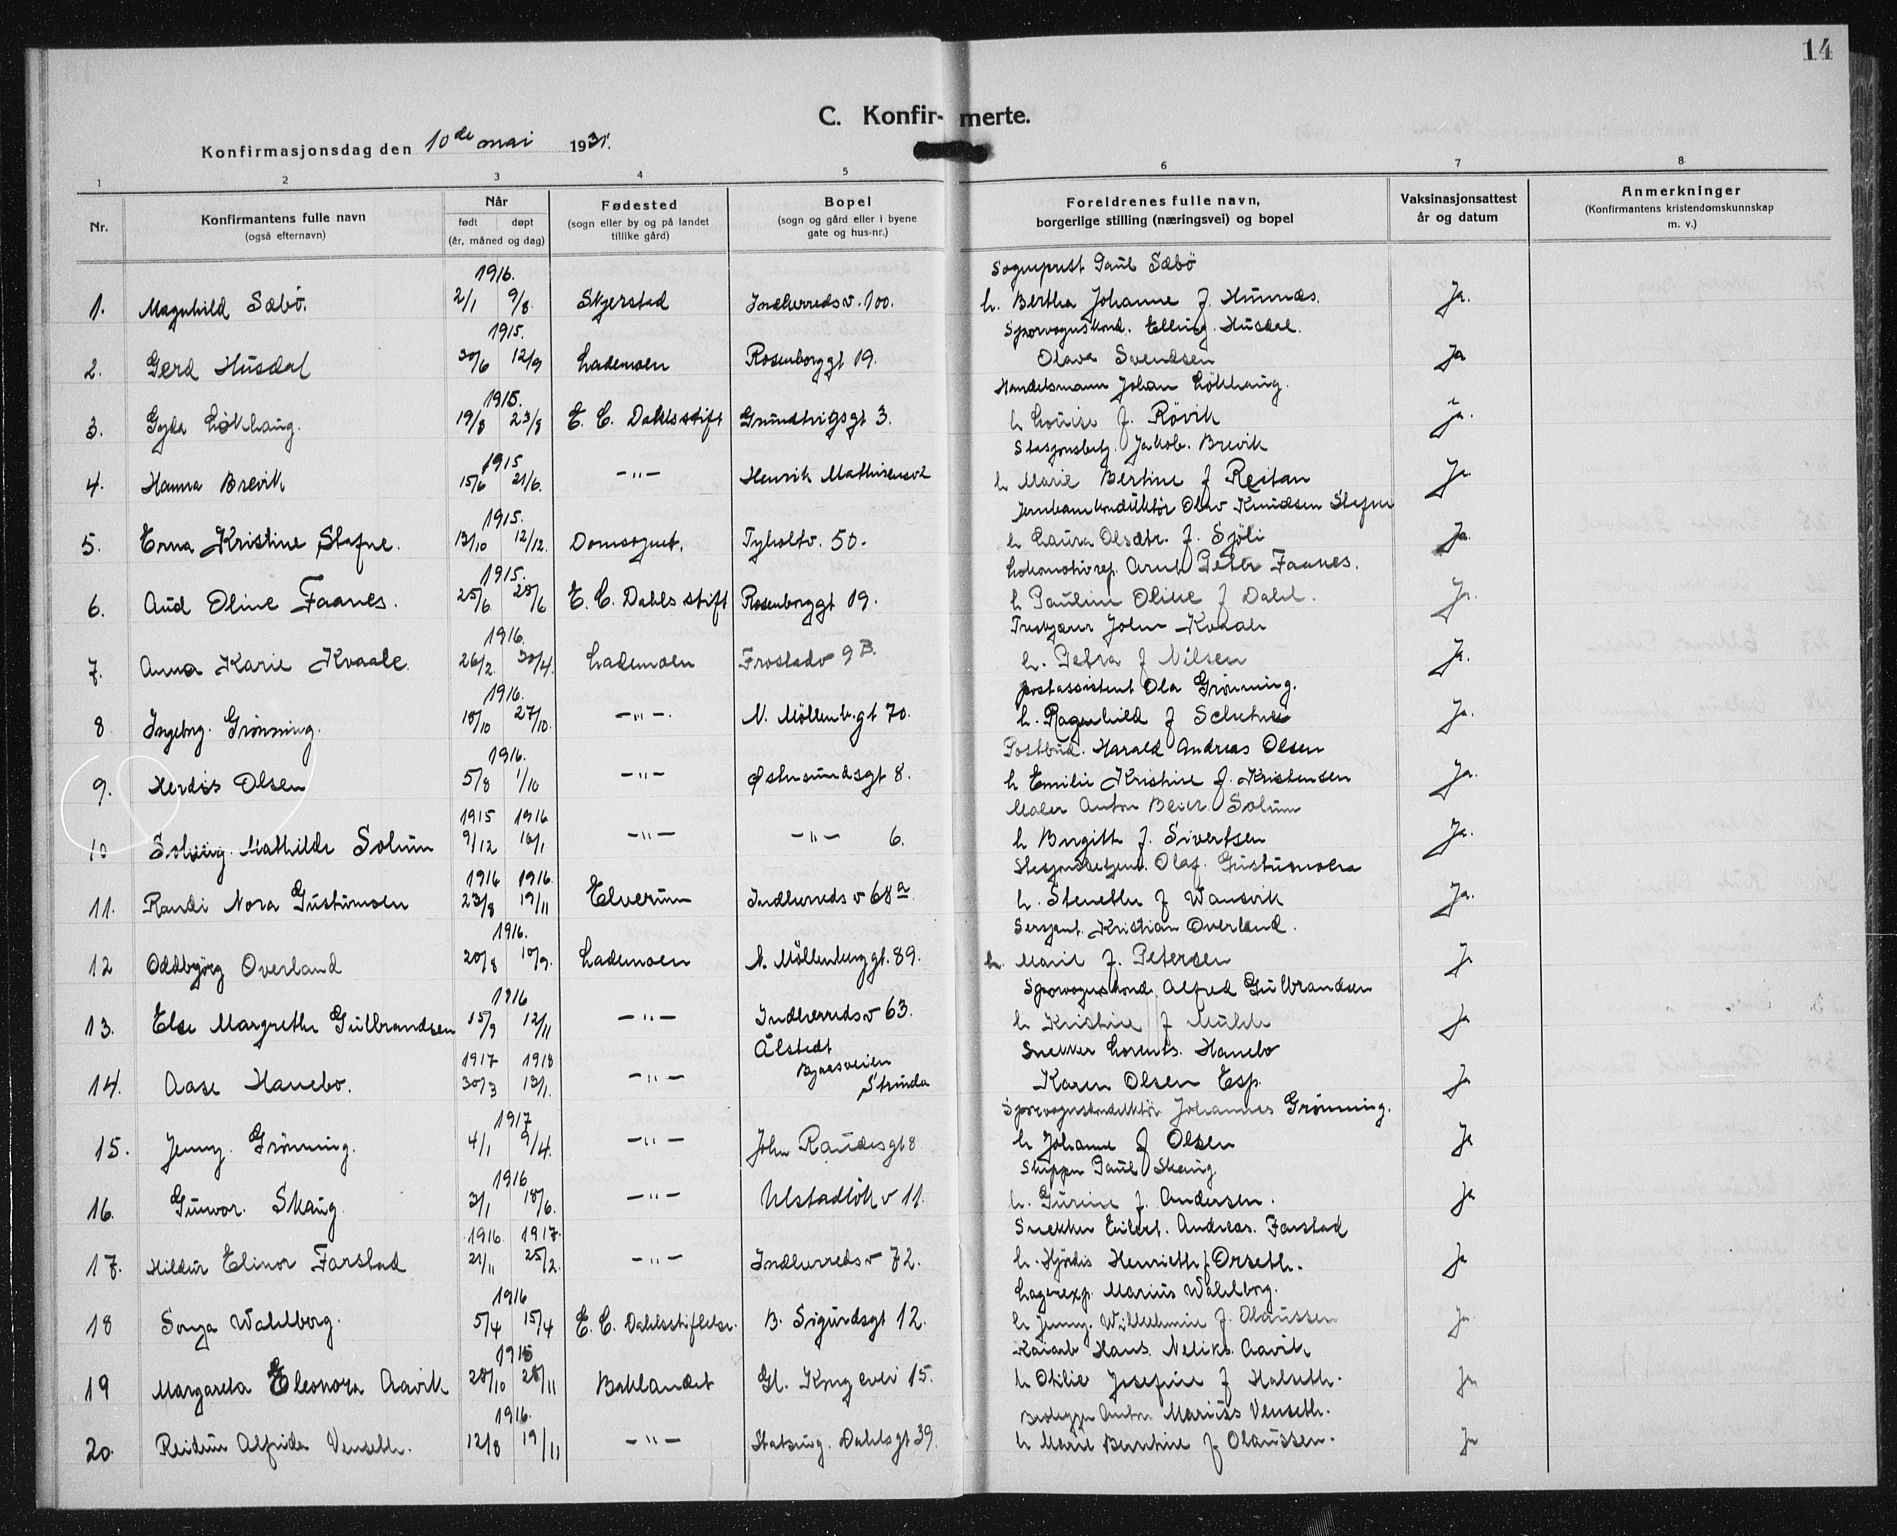 14
C. Konfirmerte.
Konfirmasjonsdag den 10de mai 1931.
1 2 3 4 5 6 7 8
Nr.
Konfirmantens fulle navn
(også efternavn)
Når
født døpt
(år, måned og dag)
Fødested
(sogn eller by og på landet
tillike gård)
Bopel
(sogn og gård eller i byene
gate og hus-nr.)
Foreldrenes fulle navn,
borgerlige stilling (næringsvei) og bopel
Vaksinasjonsattest
år og datum
Anmerkninger
(Konfirmantens kristendomskunnskap
m. v.)
1916. Sogneprest Paul Sæbö
1. Magnhild Sæbö. 2/1 9/8 Skjerstad Indherredsv. 100. h. Bertha Johanne f. Hunnæs. Ja.
1915. Sporvognskond. Elling Husdal.
2. Gerd Husdal 30/6 12/9 Lademoen Rosenborggt 19. Olava Svendsen Ja
1915. Handelsmann Johan Lökhaug.
3. Gyda Lökhaug. 19/8 23/8 E. C. Dahlsstift Grundtvigsgt 3. h Louise f. Rövik Ja.
1915 Stasjonsbetj. Jakob. Brevik
4. Hanna Brevik 15/6 21/6. -"- Henrik Mathisensv h Marie Bertine f Reitan Ja
1915. Jernbanekonduktör Olav Knudsen Stafne
5. Erna Kristine Stafne. 13/10 12/12. Domsognet. Tyholtv. 50. h Laura Olsdtr. f. Sjöli Ja
1915. Lokomotivrep. Arnt Peter Faanes.
6. Aud Oline Faanes. 25/6 28/6 E. C. Dahls stift Rosenborggt 19. h Pauline Oline f Dahl. Ja.
1916. John Kvaale
7. Anna Karie Kvaale. 26/2 30/4. Lademoen Frostadv 9B. h. Petra f Nilsen Ja.
1916. postassistent Ola Grönning.
8 Ingeborg. Grönning. 18/10 27/10. -"-. N. Möllenb.gt 70. h. Ragnhild f Ja.
1916. Postbud. Harald Andreas Olsen
9. Herdis Olsen 5/8 1/10 -"- Østersundsgt 8. h Emilie Kristine f. Kristensen Ja.
1915 1916 Maler Anton Beier Solum
10 Solveig. Mathilde Solum 9/12 16/1 -"- -"- 6. h Birgitte f. Sivertsen Ja.
1916 1916. Stasjonsbetjent. Olaf. Gustumoen
11. Randi Nora Gustumoen 23/8 19/11 Elverum Indherredsv 68a h. Stenethe f Wansvik Ja.
1916. Sersjant. Kristian Overland.
12 Oddbjörg Overland 20/8 10/9. Lademoen N. Möllenberggt. 89. h. Marie f. Petersen Ja
1916 Sporvognskond. Alfred Gulbrandsen
13. Else Margrethe Gulbrandsen 15/9 12/11 -"- Indherredsv 63. h Kristine f Ja
1917 1918 Ålstedt Snekker Lorents. Hanebo
14. Aase Hanebo. 30/3 13/1. -"- Byaasveien Strinda Karen Olsen Esp. Ja
1917 Sporvognskonduktör Johannes Grönning.
15. Jenny. Grönning. 4/1 9/4. -"- John Raudesgt 8 h Johanne f Olsen Ja
1916 Skipper Paul Skaug
16. Gunvor. Skaug 3/1 18/6. -"- Ulstadlökv 11. h. Gurine f. Andersen. Ja
1916. 1917. Snekker Eilert. Andreas. Farstad
17. Hildur Elinor Farstad 21/11 25/2. -"- Indherredsv 72. h. Hjördis Henriette f Orseth. Ja
1916 Lagerexp. Marius Wahlborg.
18 Sonja Wahlborg. 5/4 15/4 E. C. Dahlsstiftelse. B. Sigurdsgt 12. h Jenny. Wilhelmine f. Olaussen Ja
1915 Kaiarb Hans. Neliks. Aavik
19 Margareta Eleonora Aavik 28/10 28/11 Baklandet Gl. Kongevei 15. h Otilie Josefine f Halseth. Ja
1916. Anton Marius Venseth.
20. Reidun Alfrida Venseth. 12/8 19/11 -"- Statsing. Dahlsgt 39. h Marie Berntine f. Olaussen. Ja